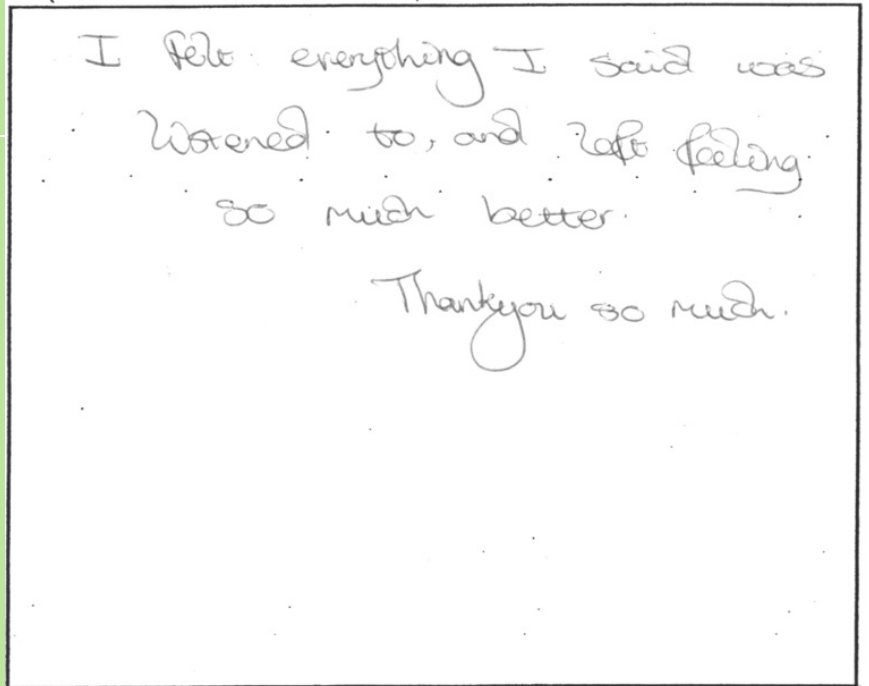 I felt everything I said was
listened to, and left feeling
so much better.
Thankyou so much.